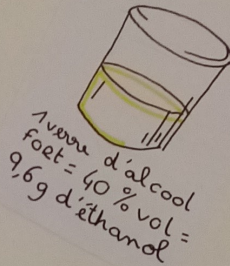 1 verre d'alcool
fort = 40 % vol =
9,6g d'éthanol